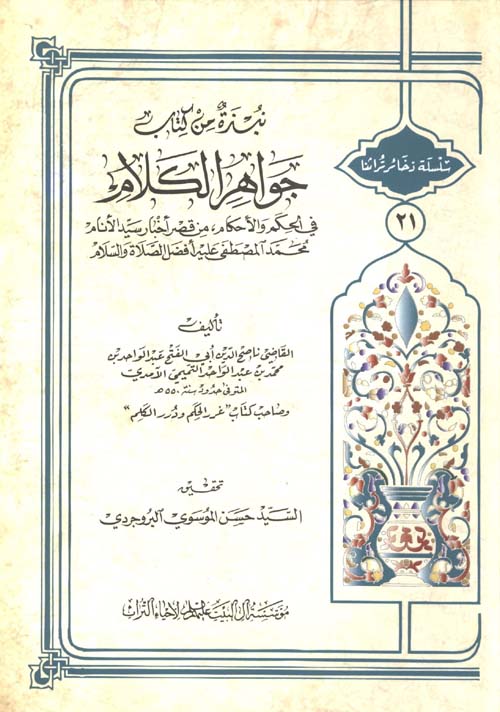 نبذة من كتاب
جواهر الكلام
في الحكم والأحكام، من قصر أخبار سيد الأنام
محمد المصطفى عليه أفضل الصلاة والسلام
تأليف
القاضي ناصح الدين أبي الفتح عبد الواحد بن
محمد بن عبد الواحد التميمي الآمدي
المتوفى حدود سنة ٥٥٠ هـ
وصاحب كتاب "غرر الحكم ودرر الكلم"
تحقيق
السيد حسن الموسوي البروجردي
مؤسسة آل البيت عليهم السلام لإحياء التراث
سلسلة ذخائر تراثنا
٢١